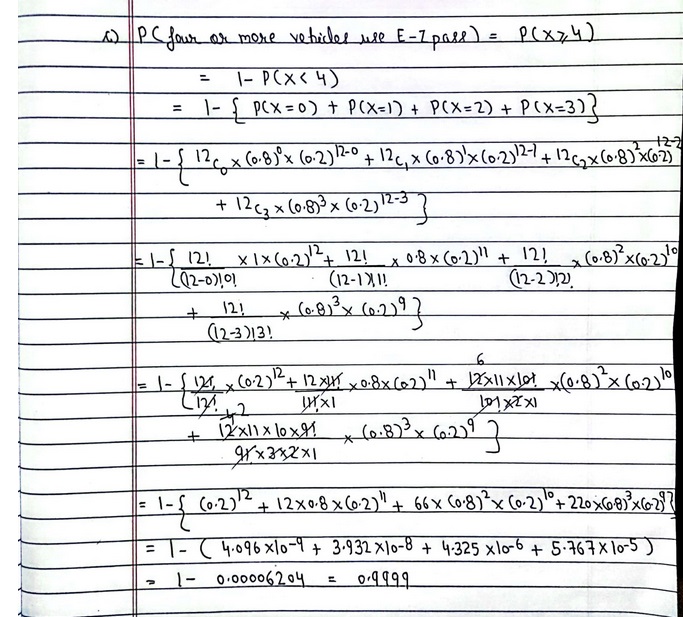 c) P(four or more vehicles use E-Z pass) = P(X≥4)
= 1-P(X<4)
= 1-{ P(X=0) + P(X=1) + P(X=2) + P(X=3)}
= 1-{ 12c₀ × (0.8)⁰ × (0.2)¹²⁻⁰ + 12c₁ × (0.8)¹ × (0.2)¹²⁻¹ + 12c₂ × (0.8)² × (0.2)¹²⁻²
+ 12c₃ × (0.8)³ × (0.2)¹²⁻³ }
= 1-{ 12!/(12-0)!0! × 1 × (0.2)¹² + 12!/(12-1)!1! × 0.8 × (0.2)¹¹ + 12!/(12-2)!2! × (0.8)² × (0.2)¹⁰
+ 12!/(12-3)!3! × (0.8)³ × (0.2)⁹ }
= 1-{ 12!/12! × (0.2)¹² + 12×11!/11!×1 × 0.8 × (0.2)¹¹ + 6 12×11×10!/10!×2×1 × (0.8)² × (0.2)¹⁰
+ 4 2 12×11×10×9!/9!×3×2×1 × (0.8)³ × (0.2)⁹ }
= 1-{ (0.2)¹² + 12×0.8×(0.2)¹¹ + 66×(0.8)²×(0.2)¹⁰ + 220×(0.8)³×(0.2)⁹}
= 1-( 4.096×10-9 + 3.932×10-8 + 4.325×10-6 + 5.767×10-5 )
= 1- 0.00006204 = 0.9999